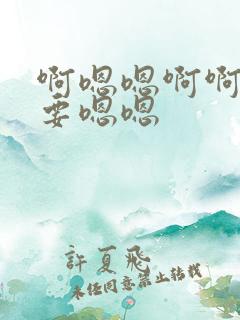 啊嗯嗯啊啊
要嗯嗯
許夏飛
未經同意禁止转载